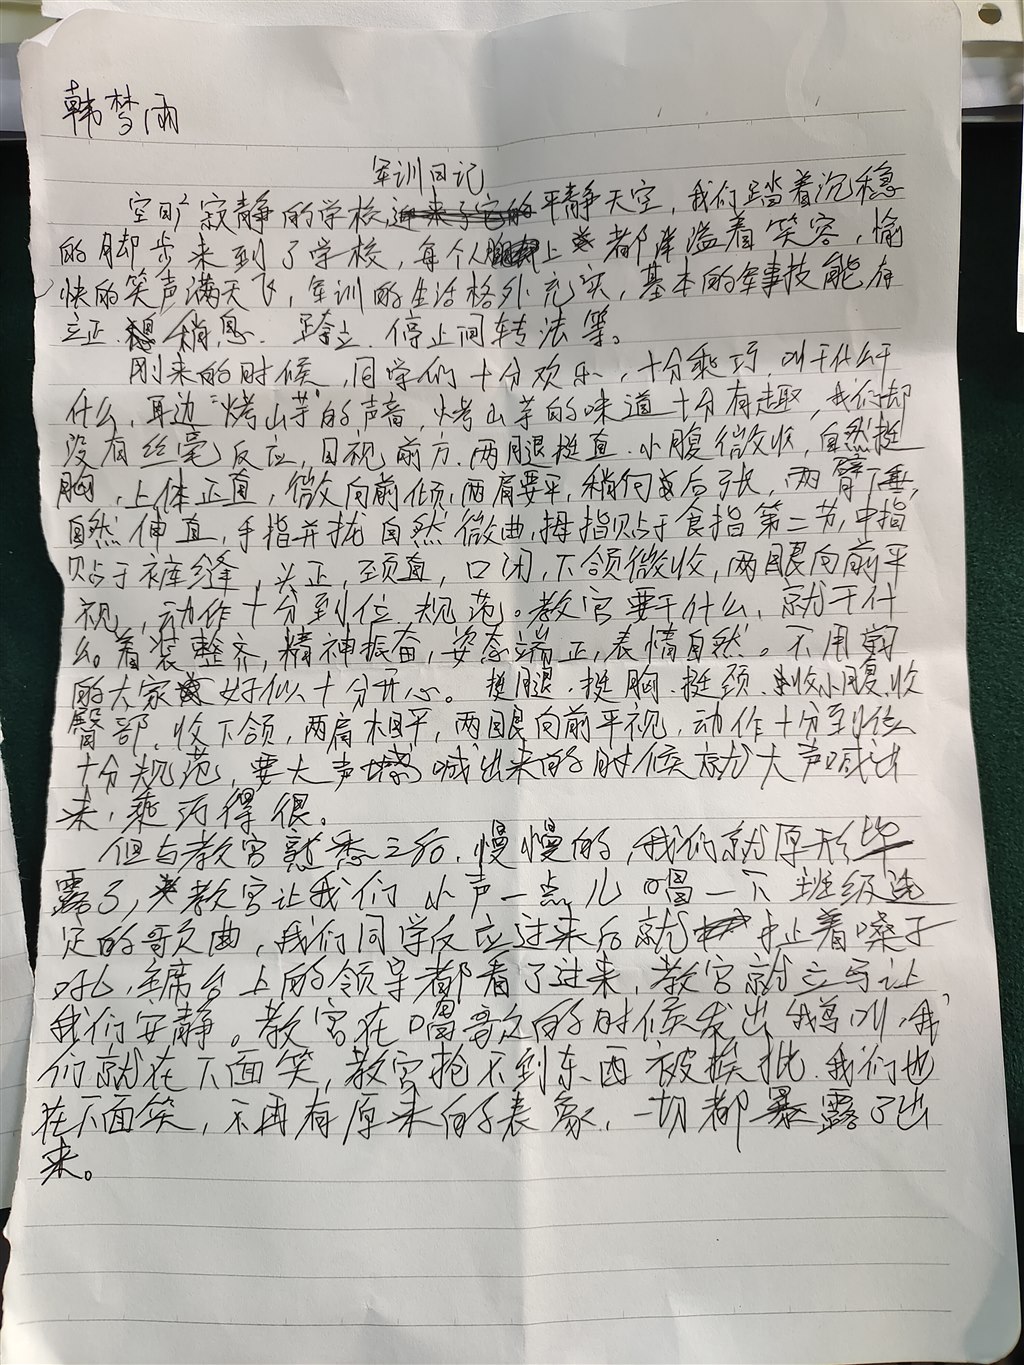 韩梦雨
军训日记
空旷寂静的学校,平静天空,我们踏着沉稳
的脚步来到了学校,每个人上都洋溢着笑容,愉
快的笑声满天飞,军训的生活格外充实,基本的军事技能有
立正 稍息、跨立、停止间转法等。
刚来的时候,同学们十分欢乐,十分乖巧,叫干什么干
什么,耳边“烤山芋”的声音,烤山芋的味道十分有趣,我们却
没有丝毫反应,目视前方、两腿挺直、小腹微收,自然挺
胸,上体正直,微向前倾,两肩要平,稍向后张,两臂下垂,
自然伸直,手指并拢自然微曲,拇指贴于食指第二节,中指
贴于裤缝,头正,颈直,口闭,下颌微收,两眼向前平
视,动作十分到位、规范。教官要干什么,就干什
么。着装整齐,精神振奋,姿态端正,表情自然。不用
的大家好似十分开心。挺腿、挺胸、挺颈、收小腹收
臀部、收下颌,两肩相平,两眼向前平视,动作十分到位
十分规范,要大声喊出来的时候就大声喊出
来,乖巧得很。
但与教官熟悉之后,慢慢的,我们就原形毕
露了,教官让我们小声一点儿唱一下班级选
定的歌曲,我们同学反应过来后就扯着嗓子
吼,主席台上的领导都看了过来,教官就立马让
我们安静。教官在唱歌的时候发出鹅叫,我
们就在下面笑,教官抢不到东西被挨批,我们也
在下面笑,不再有原来的表象,一切都暴露了出
来。